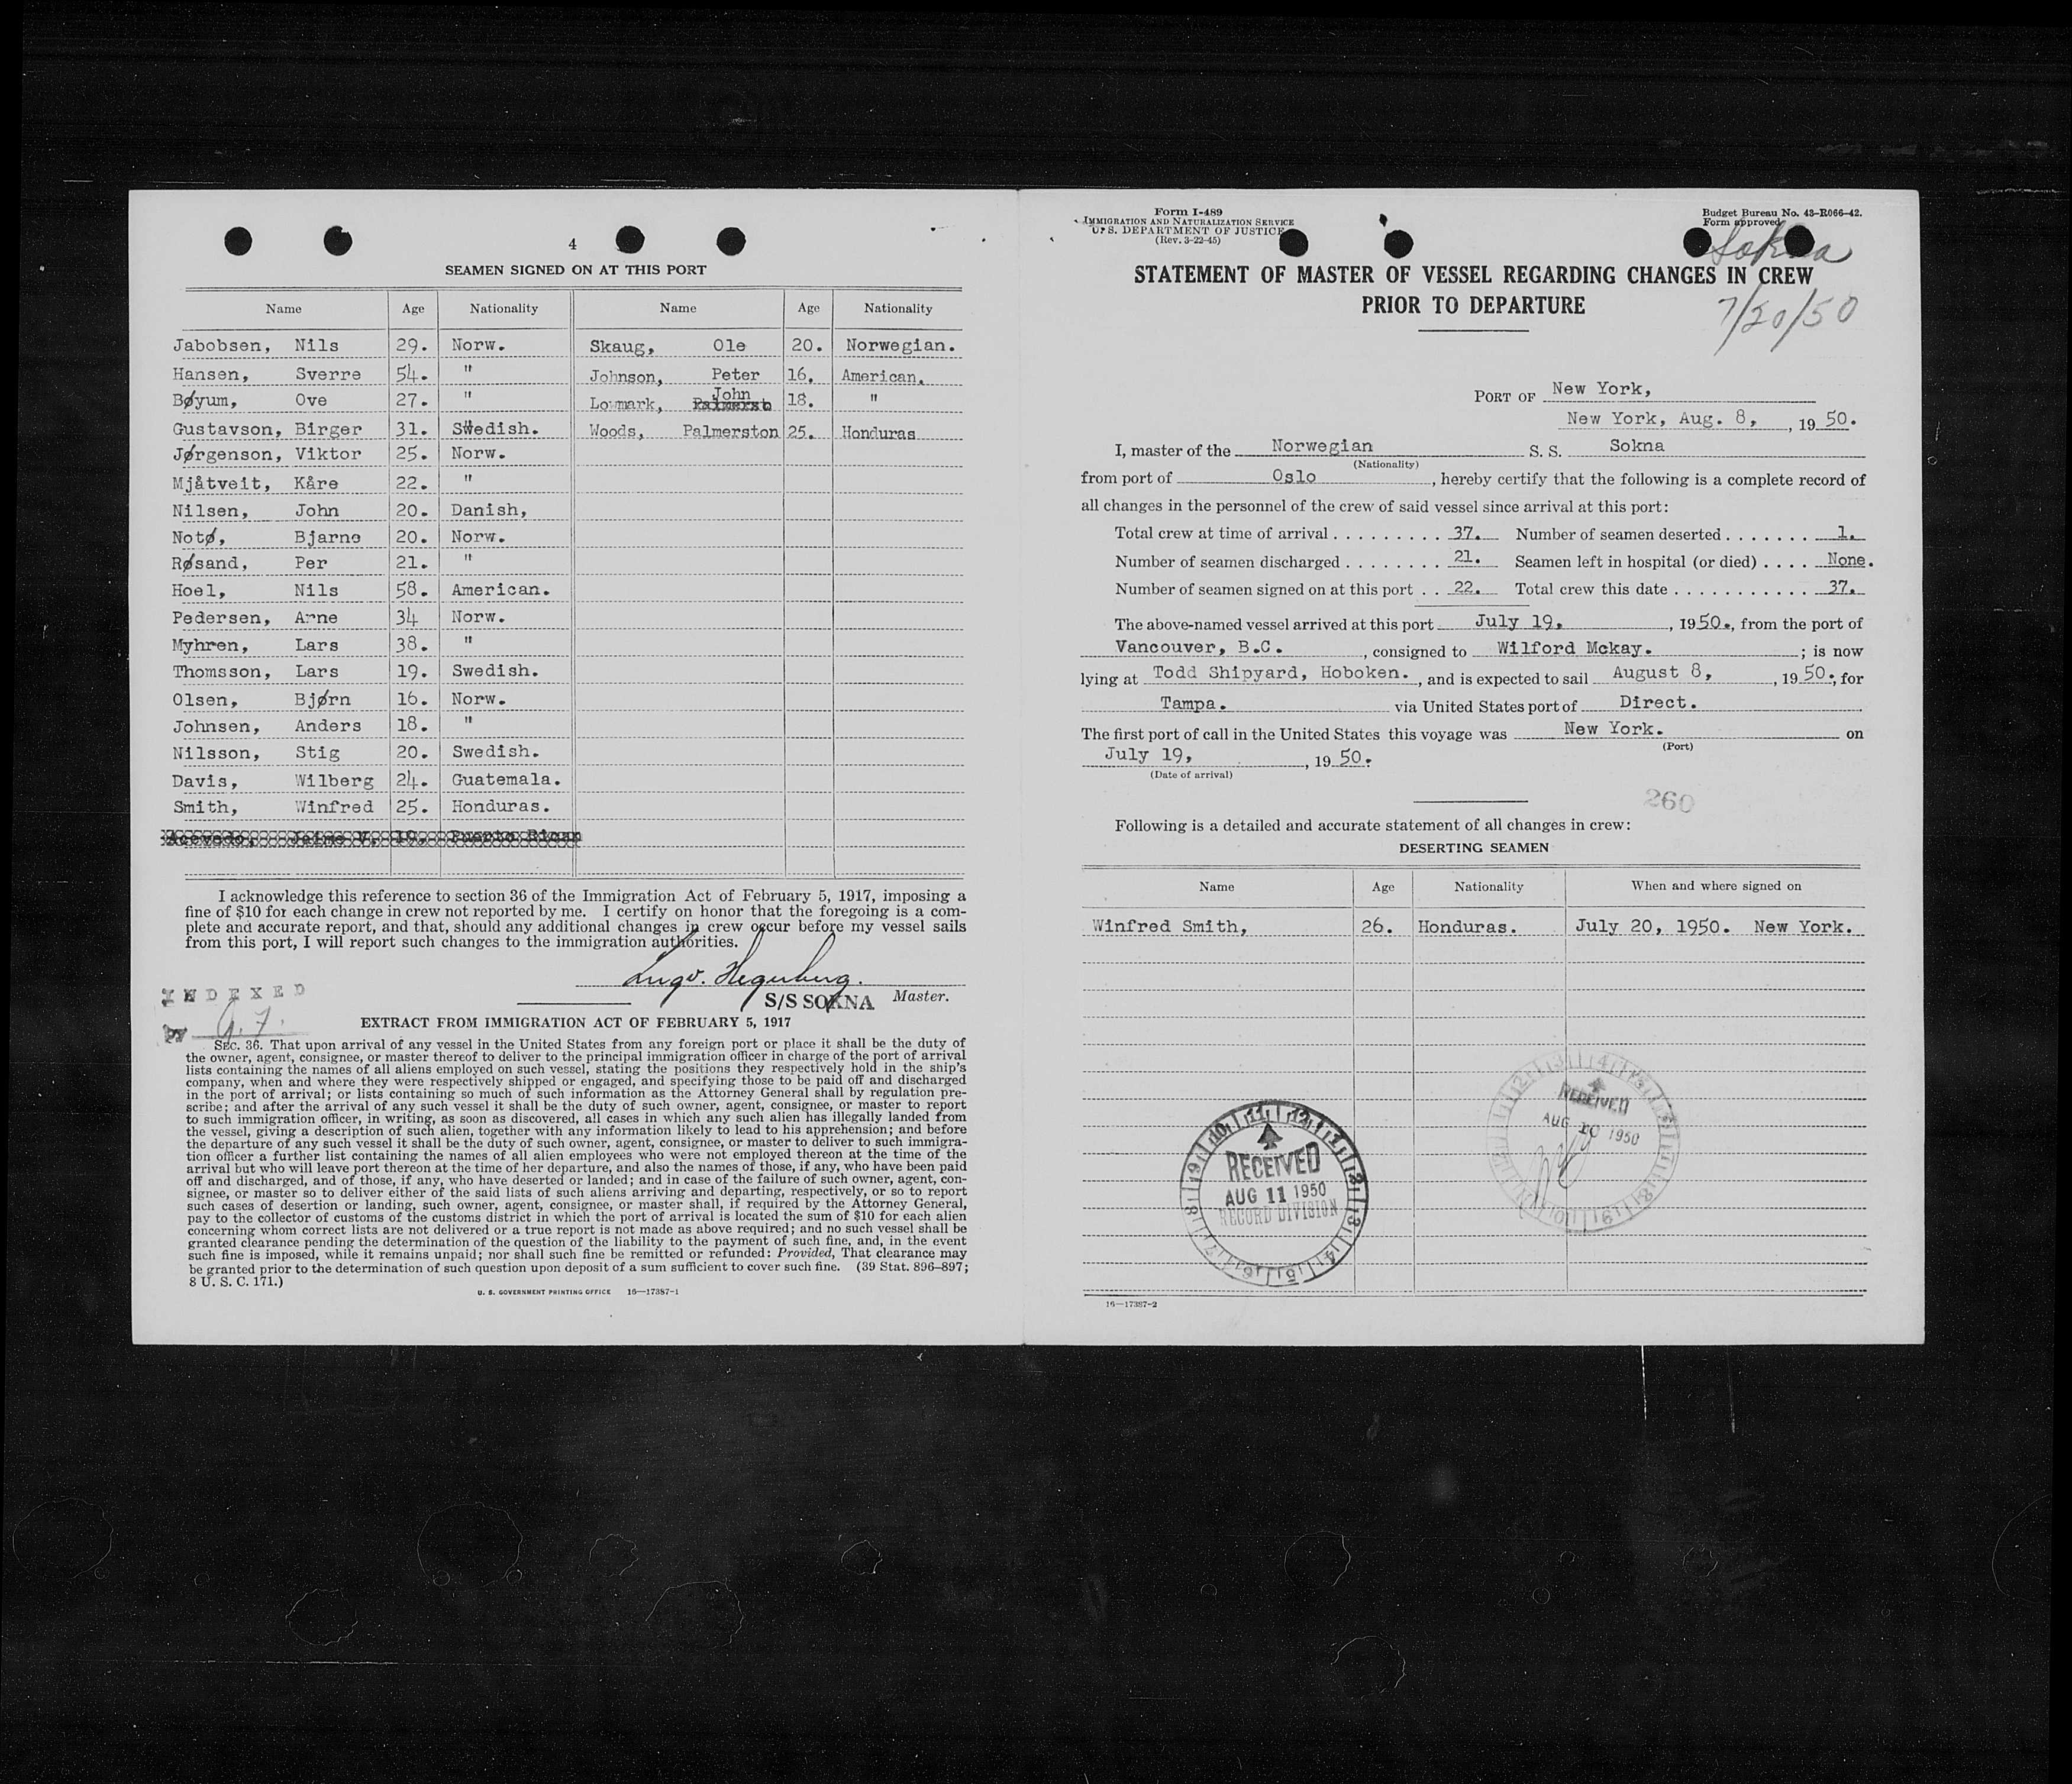 4
SEAMEN SIGNED ON AT THIS PORT
Name Age Nationality Name Age Nationality
Jabobsen, Nils 29. Norw. Skaug, Ole 20. Norwegian.
Hansen, Sverre 54. " Johnson, Peter 16. American.
Bøyum, Ove 27. " Lowmark, John 18. "
Gustavson, Birger 31. Swedish. Woods, Palmerston 25. Honduras
Jørgenson, Viktor 25. Norw.
Mjåtveit, Kåre 22. "
Nilsen, John 20. Danish,
Notø, Bjarne 20. Norw.
Røsand, Per 21. "
Hoel, Nils 58. American.
Pedersen, Arne 34 Norw.
Myhren, Lars 38. "
Thomsson, Lars 19. Swedish.
Olsen, Bjørn 16. Norw.
Johnsen, Anders 18. "
Nilsson, Stig 20. Swedish.
Davis, Wilberg 24. Guatemala.
Smith, Winfred 25. Honduras.
Acevedo, Jaime V. 19. Puerto Rican
I acknowledge this reference to section 36 of the Immigration Act of February 5, 1917, imposing a
fine of $10 for each change in crew not reported by me. I certify on honor that the foregoing is a com-
plete and accurate report, and that, should any additional changes in crew occur before my vessel sails
from this port, I will report such changes to the immigration authorities.
S/S SOKNA Master.
INDEXED
BY
EXTRACT FROM IMMIGRATION ACT OF FEBRUARY 5, 1917
SEC. 36. That upon arrival of any vessel in the United States from any foreign port or place it shall be the duty of
the owner, agent, consignee, or master thereof to deliver to the principal immigration officer in charge of the port of arrival
lists containing the names of all aliens employed on such vessel, stating the positions they respectively hold in the ship's
company, when and where they were respectively shipped or engaged, and specifying those to be paid off and discharged
in the port of arrival; or lists containing so much of such information as the Attorney General shall by regulation pre-
scribe; and after the arrival of any such vessel it shall be the duty of such owner, agent, consignee, or master to report
to such immigration officer, in writing, as soon as discovered, all cases in which any such alien has illegally landed from
the vessel, giving a description of such alien, together with any information likely to lead to his apprehension; and before
the departure of any such vessel it shall be the duty of such owner, agent, consignee, or master to deliver to such immigra-
tion officer a further list containing the names of all alien employees who were not employed thereon at the time of the
arrival but who will leave port thereon at the time of her departure, and also the names of those, if any, who have been paid
off and discharged, and of those, if any, who have deserted or landed; and in case of the failure of such owner, agent, con-
signee, or master so to deliver either of the said lists of such aliens arriving and departing, respectively, or so to report
such cases of desertion or landing, such owner, agent, consignee, or master shall, if required by the Attorney General,
pay to the collector of customs of the customs district in which the port of arrival is located the sum of $10 for each alien
concerning whom correct lists are not delivered or a true report is not made as above required; and no such vessel shall be
granted clearance pending the determination of the question of the liability to the payment of such fine, and, in the event
such fine is imposed, while it remains unpaid; nor shall such fine be remitted or refunded: Provided, That clearance may
be granted prior to the determination of such question upon deposit of a sum sufficient to cover such fine. (39 Stat. 896–897;
8 U. S. C. 171.)
U. S. GOVERNMENT PRINTING OFFICE 16—17387-1
Form I-489
IMMIGRATION AND NATURALIZATION SERVICE
U. S. DEPARTMENT OF JUSTICE
(Rev. 3-22-45)
Budget Bureau No. 43-R066-42.
Form approved
Sokna
STATEMENT OF MASTER OF VESSEL REGARDING CHANGES IN CREW
PRIOR TO DEPARTURE
7/20/50
PORT OF New York,
New York, Aug. 8, , 19 50.
I, master of the Norwegian S. S. Sokna
(Nationality)
from port of Oslo , hereby certify that the following is a complete record of
all changes in the personnel of the crew of said vessel since arrival at this port:
Total crew at time of arrival . . . . . . . . . 37. Number of seamen deserted . . . . . . . 1.
Number of seamen discharged . . . . . . . . 21. Seamen left in hospital (or died) . . . . None.
Number of seamen signed on at this port . . 22. Total crew this date . . . . . . . . . . . . 37.
The above-named vessel arrived at this port July 19, , 1950., from the port of
Vancouver, B.C. , consigned to Wilford Mckay. ; is now
lying at Todd Shipyard, Hoboken. , and is expected to sail August 8, , 19 50., for
Tampa. via United States port of Direct.
The first port of call in the United States this voyage was New York. on
(Port)
July 19, , 19 50.
(Date of arrival)
260
Following is a detailed and accurate statement of all changes in crew:
DESERTING SEAMEN
Name Age Nationality When and where signed on
Winfred Smith, 26. Honduras. July 20, 1950. New York.
RECEIVED
AUG 10 1950
RECEIVED
AUG 11 1950
RECORD DIVISION
16—17387-2